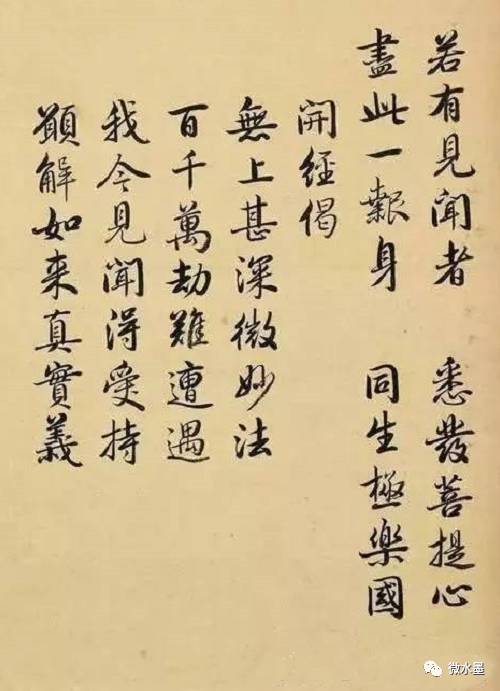 若有見聞者　悉發菩提心
盡此一報身　同生極樂國
開經偈
無上甚深微妙法
百千萬劫難遭遇
我今見聞得受持
願解如来真實義
微水墨